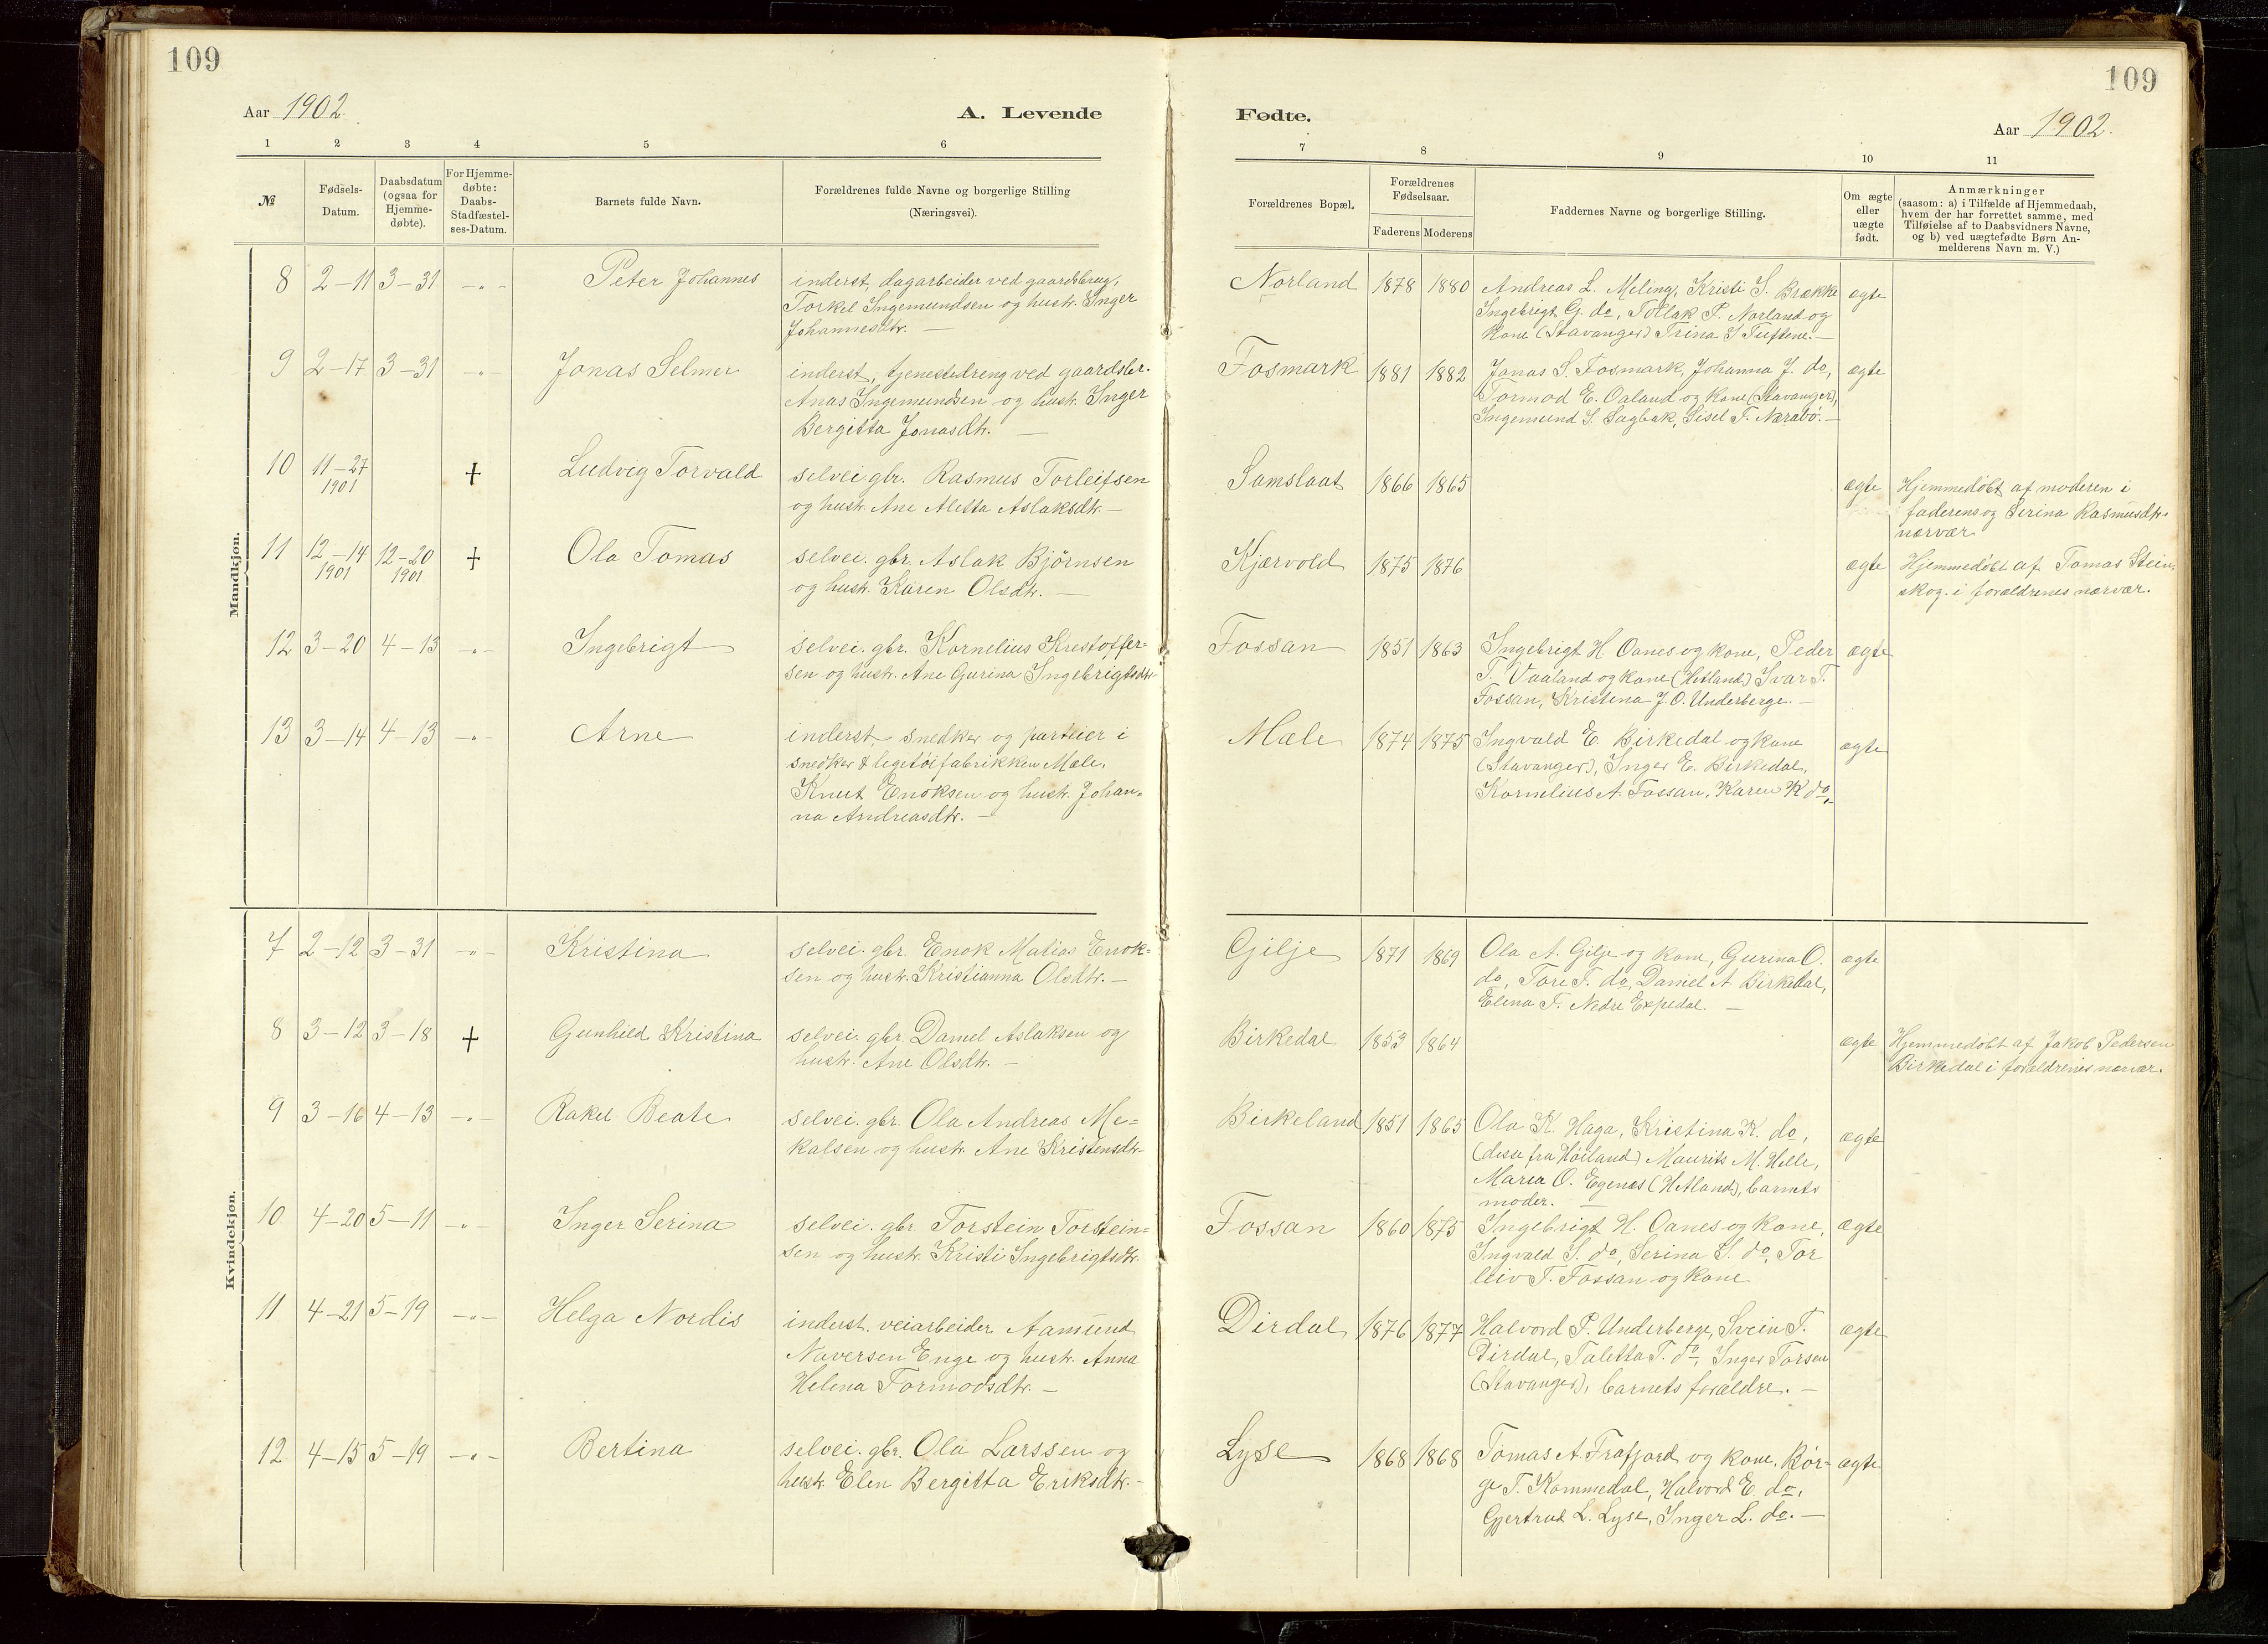 109
109
Aar 1902.
A. Levende
Fødte.
Aar 1902.
1 2 3 4 5 6
7 8 9 10 11
№
Fødsels-
Datum.
Daabsdatum
(ogsaa for
Hjemme-
døbte).
For Hjemme-
døbte:
Daabs-
Stadfæstel-
ses-Datum.
Barnets fulde Navn.
Forældrenes fulde Navne og borgerlige Stilling
(Næringsvei).
Forældrenes Bopæl.
Forældrenes
Fødselsaar.
Faderens Moderens
Faddernes Navne og borgerlige Stilling.
Om ægte
eller
uægte
født.
Anmærkninger
(saasom: a) i Tilfælde af Hjemmedaab,
hvem der har forrettet samme, med
Tilføielse af to Daabsvidners Navne,
og b) ved uægtefødte Børn An-
melderens Navn m. V.)
Mandkjøn.
8 2-11 3-31 -"- Peter Johannes
inderst, dagarbeider ved gaardsbrug,
Torkel Ingemundsen og hustr. Inger
Johannesdtr. —
Norland 1878 1880
Andreas L. Meling, Kristi S. Brække
Ingebrigt G. do, Tollak P. Norland og
kone (Stavanger) Trina S Tuftene. —
ægte
9 2-17 3-31 -"- Jonas Selmer
inderst, tjenestedreng ved gaardsbr.
Anas Ingemundsen og hustr. Inger
Bergitta Jonasdtr. —
Fosmark 1881 1882
Jonas S. Fosmark, Johanna J. do,
Tormod E. Oaland og kone (Stavanger),
Ingemund S. Sagbak, Sisel T. Nærabö. —
ægte
10 11-27 1901 + Ludvig Torvald
selvei. gbr. Rasmus Torleifsen
og hustr. Ane Aletta Aslaksdtr. —
Samslaat 1866 1865
ægte
Hjemmedöbt af moderen i
faderens og Serina Rasmusdtr.
nærvær.
11 12-14 1901 12-20 1901 + Ola Tomas
selvei. gbr. Aslak Björnsen
og hustr. Karen Olsdtr. —
Kjærvold 1875 1876
ægte
Hjemmedöbt af Tomas Stein-
skog. i forældrenes nærvær.
12 3-20 4-13 -"- Ingebrigt
selvei. gbr. Kornelius Kristoffer-
sen og hustr. Ane Gurina Ingebrigtsdtr
Fossan 1851 1863
Ingebrigt H Oanes og kone, Peder
T. Vaaland og kone (Hetland) Ivar T.
Fossan, Kristina J. O. Underberge. —
ægte
13 3-14 4-13 -"- Arne
inderst, snedker og parteier i
snedker & legetöifabrikken Mæle,
Knut Enoksen og hustr. Johan-
na Andreasdtr. —
Mæle 1874 1875
Ingvald E. Birkedal og kone
(Stavanger), Inger E. Birkedal,
Kornelius A. Fossan, Karen K do,
ægte
Kvindekjøn.
7 2-12 3-31 -"- Kristina
selvei. gbr. Enok Matias Enok-
sen og hustr. Kristianna Olsdtr. —
Gilje 1871 1869
Ola A. Gilje og kone, Gurina O.
do, Tore T. do, Daniel A Birkedal,
Elena T. Nedre Espedal. —
ægte
8 3-12 3-18 + Gunhild Kristina
selvei. gbr. Daniel Aslaksen og
hustr. Ane Olsdtr. —
Birkedal 1853 1864
ægte
Hjemmedöbt af Jakob Pedersen
Birkedal i forældrenes nærvær.
9 3-16 4-13 -"- Rakel Beate
selvei. gbr. Ola Andreas Me-
kalsen og hustr. Ane Kristensdtr
Birkeland 1851 1865
Ola K. Haga, Kristina K. do,
(disse fra Höiland) Maurits M. Helle,
Maria O. Egenes (Hetland), barnets
moder. —
ægte
10 4-20 5-11 -"- Inger Serina
selvei. gbr. Torstein Torstein-
sen og hustr. Kristi Ingebrigtsdtr.
Fossan 1860 1875
Ingebrigt H. Oanes og kone,
Ingvald S. do, Serina S. do, Tor
leiv T. Fossan og kone
ægte
11 4-21 5-19 -"- Helga Nordis
inderst. veiarbeider Aamund
Naversen Enge og hustr. Anna
Helena Tormodsdtr. —
Dirdal 1876 1877
Halvord P. Underberge, Svein T.
Dirdal, Taletta T. do, Inger Torsen
(Stavanger), barnets forældre. —
ægte
12 4-15 5-19 -"- Bertina
selvei. gbr. Ola Larssen og
hustr. Elen Bergitta Eriksdtr. —
Lyse 1868 1868
Tomas A. Frafjord og kone, Bör-
ge T. Kommedal, Halvord E. do,
Gjertrud L. Lyse, Inger L. do. —
ægte